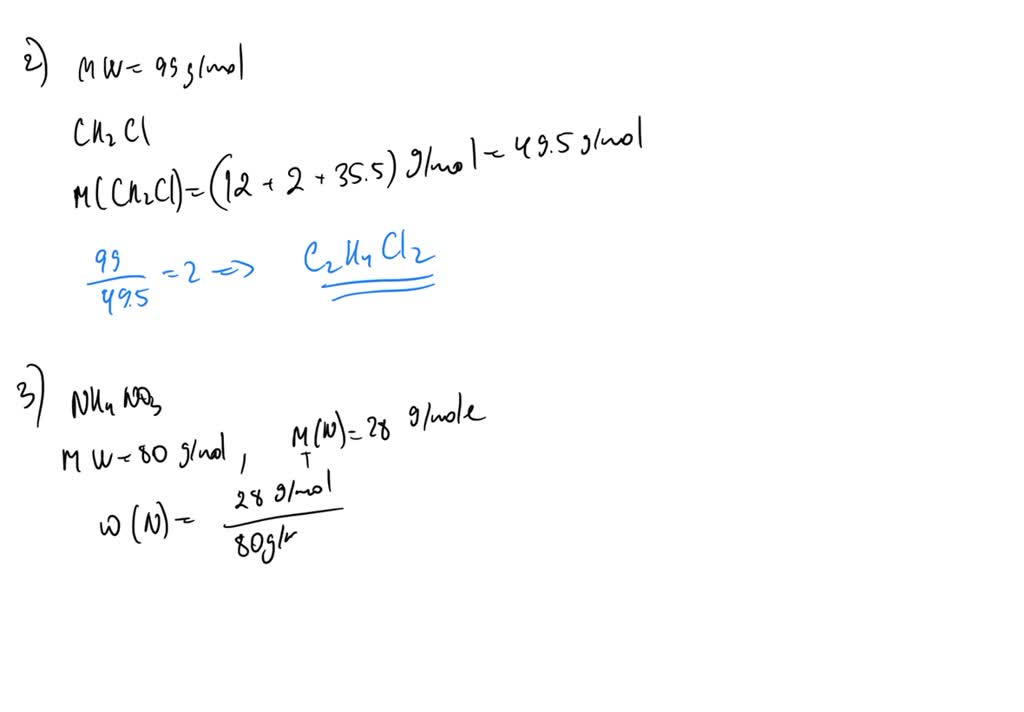 2) MW = 99 g/mol
CH₂Cl
M(CH₂Cl) = (12 + 2 + 35.5) g/mol = 49.5 g/mol
99/49.5 = 2 => C₂H₄Cl₂
3) NH₄NO₃
MW = 80 g/mol, M_T(N) = 28 g/mole
ω(N) = 28 g/mol / 80 g/